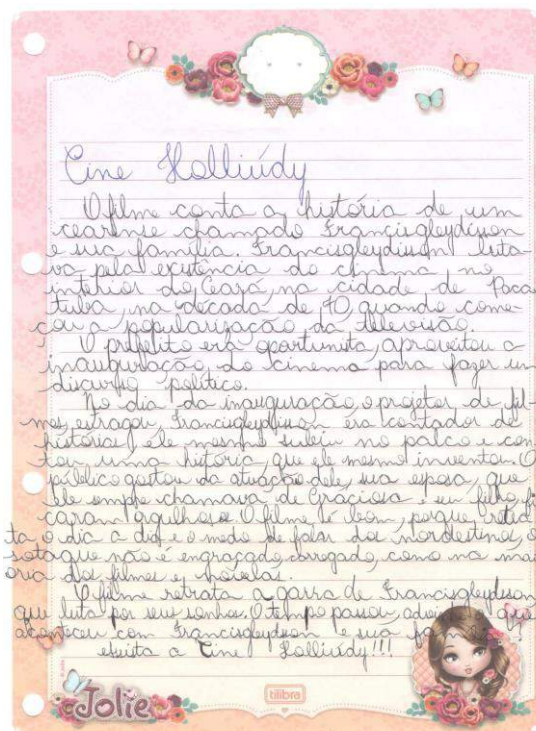 Cine Holliúdy
O filme conta a história de um
cearense chamado Francisgleydisson
e sua família. Francisgleydisson luta-
va pela existência do cinema no
interior do Ceará, na cidade de Paca
tuba, na década de 70, quando come-
çou a popularização da televisão
O prefeito era oportunista, aproveitou a
inauguração do cinema para fazer um
discurso político.
No dia da inauguração, o projetor de fil-
mes, estragou, Francisgleydisson era contador de
história, ele mesmo subiu no palco e con
tou uma história que ele mesmo inventou. O
público gostou da atuação dele, sua esposa, que
ele sempre chamava de Graciosa e seu filho, fi
caram orgulhosos. O filme é bom, porque retra
ta o dia a dia e o modo de falar dos nordestinos, o
sotaque não é engraçado, carregado, como na mai
oria dos filmes e novelas.
O filme retrata a garra de Francisgleydisson
que luta por seus sonhos. O tempo passou, que
aconteceu com Francisgleydisson e sua
assista a Cine Holliúdy!!!
Jolie
tilibra